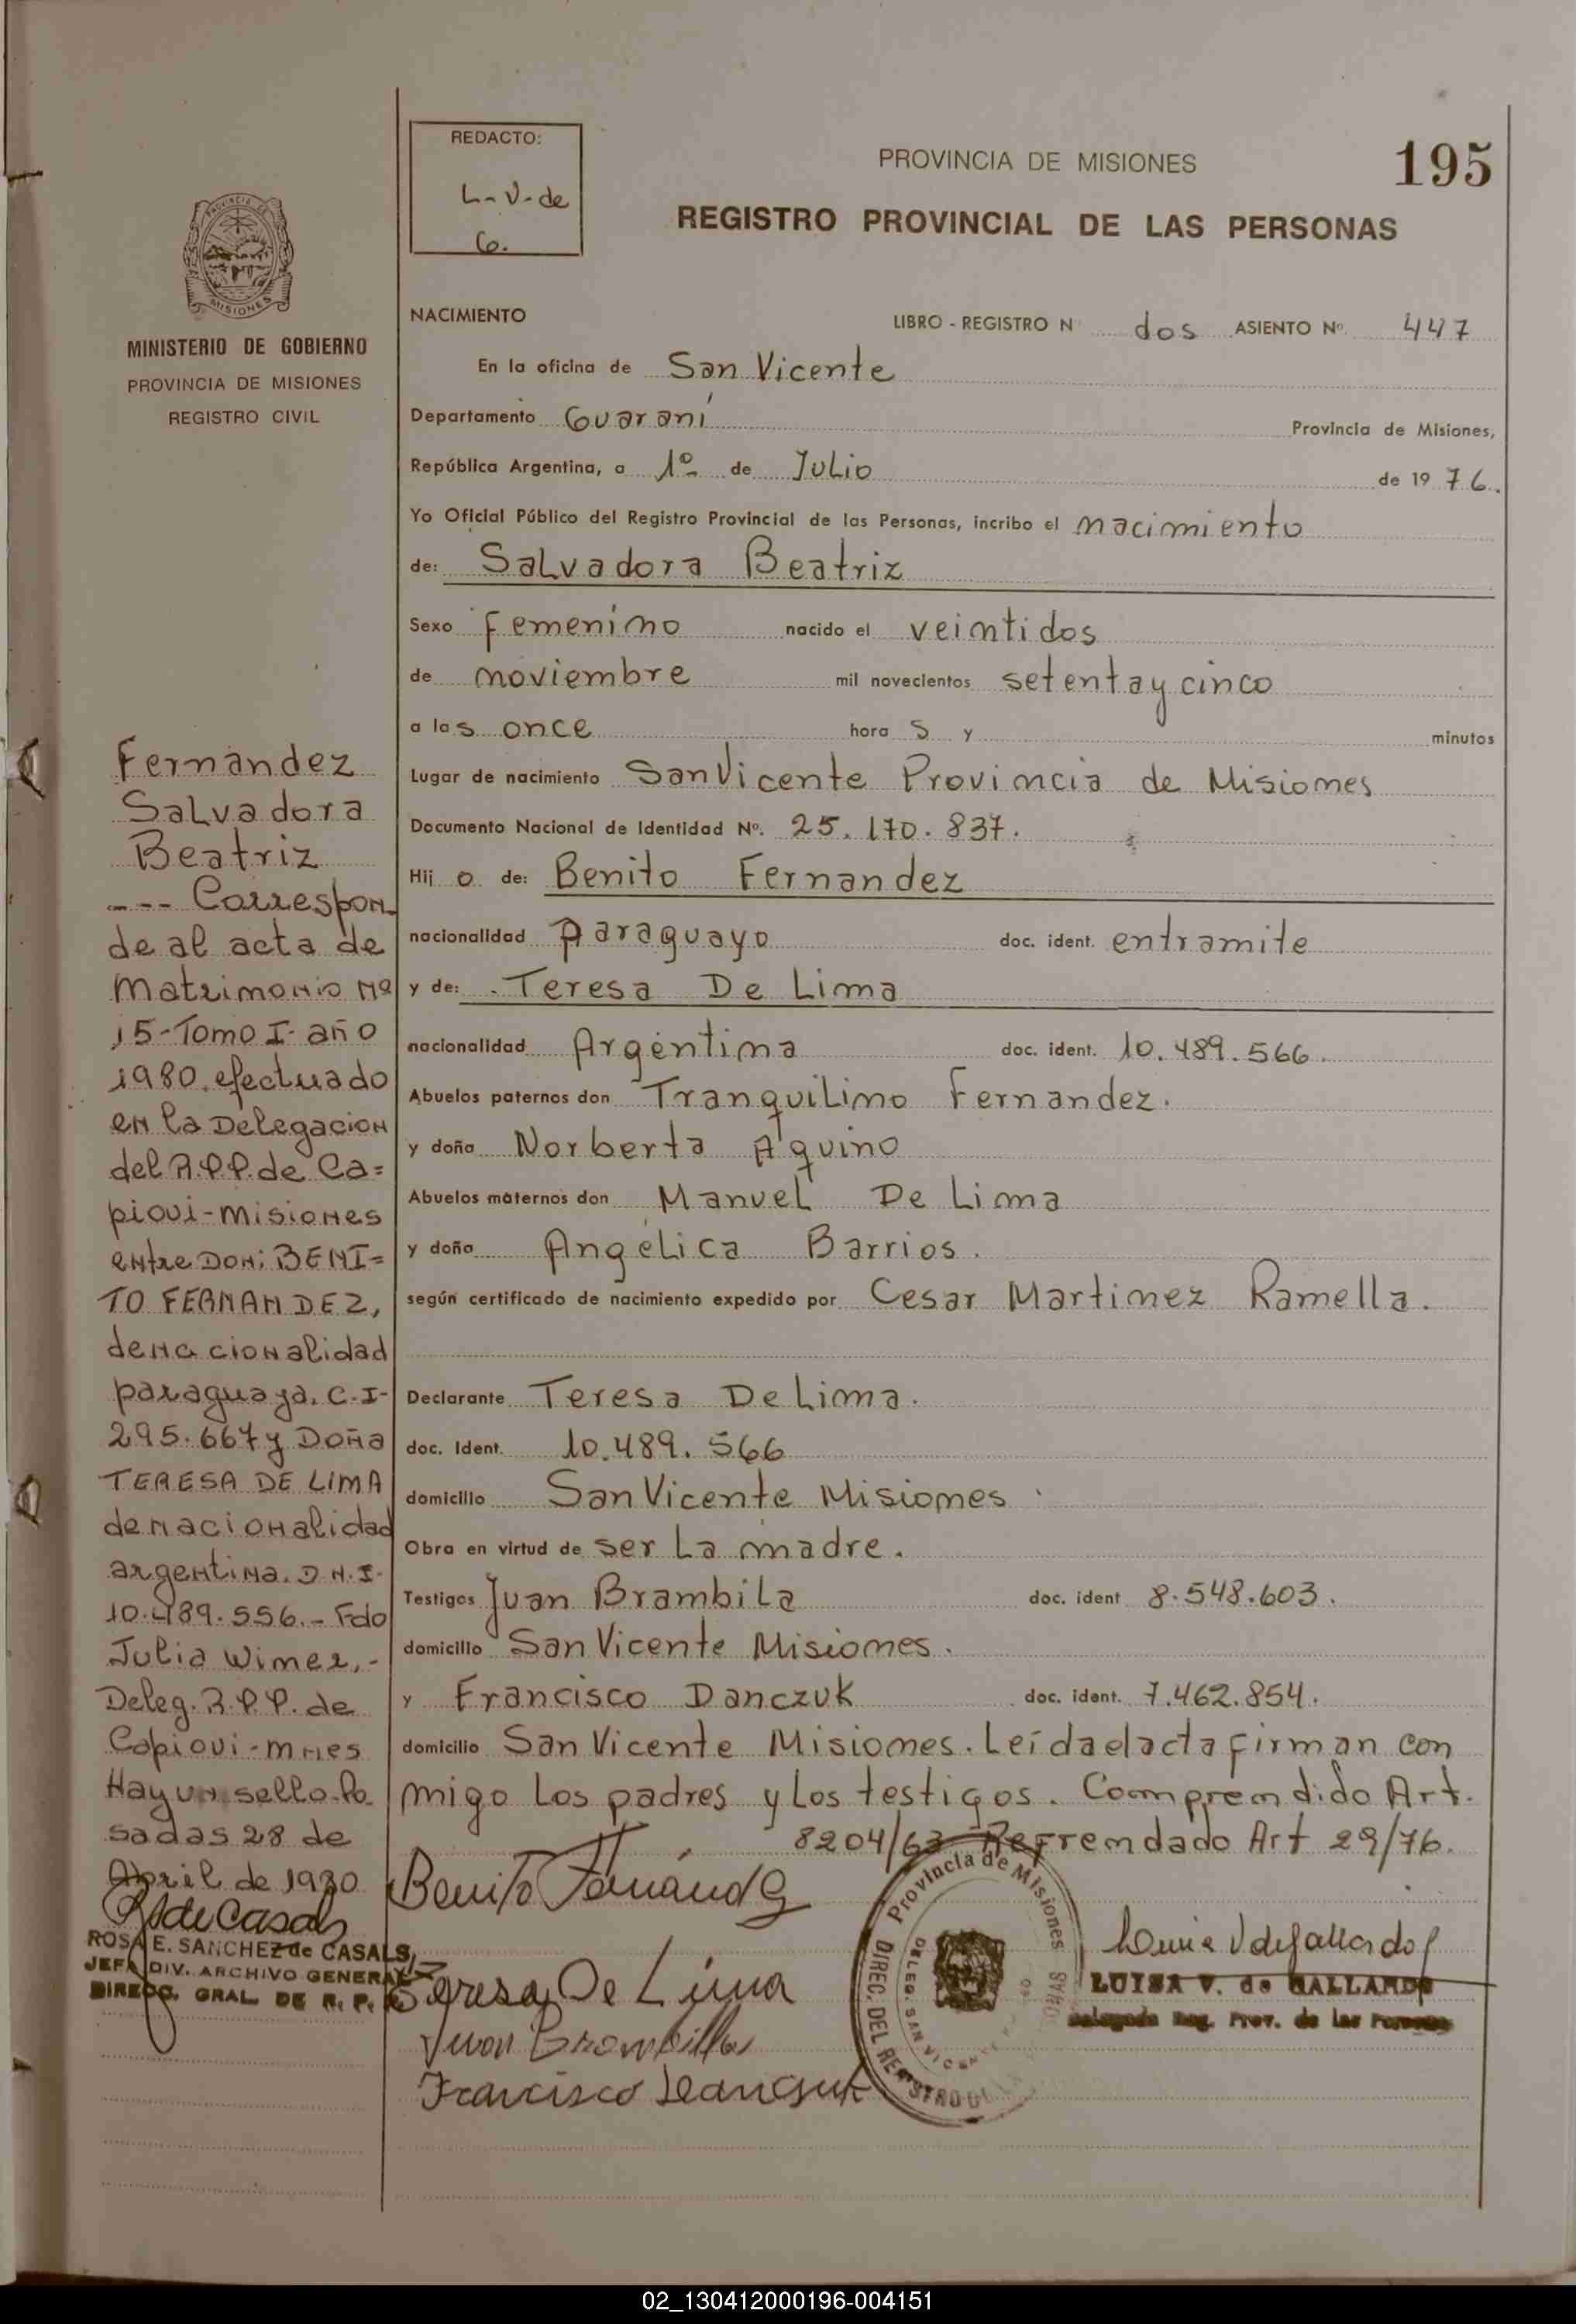 REDACTO:
L-V-de
G.
PROVINCIA DE MISIONES
195
REGISTRO PROVINCIAL DE LAS PERSONAS
MISIONES
MINISTERIO DE GOBIERNO
PROVINCIA DE MISIONES
REGISTRO CIVIL
NACIMIENTO LIBRO - REGISTRO N dos ASIENTO Nº 447
En la oficina de San Vicente
Departamento Guaraní Provincia de Misiones,
República Argentina, a 1º de Julio de 19 76.
Yo Oficial Público del Registro Provincial de las Personas, incribo el nacimiento
de: Salvadora Beatriz
Sexo femenino nacido el veintidos
de noviembre mil novecientos setenta y cinco
a las once horas y minutos
Lugar de nacimiento San Vicente Provincia de Misiones
Documento Nacional de Identidad Nº. 25.170.837.
Hijo de: Benito Fernandez
nacionalidad Paraguayo doc. ident. entramite
y de: Teresa De Lima
nacionalidad Argentina doc. ident. 10.489.566.
Abuelos paternos don Tranquilino Fernandez.
y doña Norberta Aquino
Abuelos maternos don Manuel De Lima
y doña Angélica Barrios.
según certificado de nacimiento expedido por Cesar Martinez Ramella.
Declarante Teresa De Lima.
doc. Ident. 10.489.566
domicilio San Vicente Misiones
Obra en virtud de ser La madre.
Testigos Juan Brambila doc. ident 8.548.603.
domicilio San Vicente Misiones.
y Francisco Danczuk doc. ident. 7.462.854.
domicilio San Vicente Misiones. Leída el acta firman con
migo los padres y los testigos. Comprendido Art.
8204/63 Refrendado Art 29/76.
Benito Fernández
Teresa De Lima
Juan Brambilla
Francisco Danczuk
Provincia de Misiones
DIREC. DEL REGISTRO
DELEG. SAN VICENTE
LUISA V. de GALLARDO
Delegada Reg. Prov. de las Personas
Fernández
Salvadora
Beatriz
--- Correspon-
de al acta de
Matrimonio Nº
15-Tomo I- año
1980. efectuado
en la Delegacion
del R.P.P. de Ca=
piovi-misiones
entre Don: BENI=
TO FERNANDEZ,
de nacionalidad
paraguaya. C.I-
295.667 y Doña
TERESA DE LIMA
de nacionalidad
argentina. D.N.I-
10.489.556.- Fdo
Julia Wimer,-
Deleg. R.P.P. de
Capiovi-mnes
Hay un sello. Po
sadas 28 de
Abril de 1980
RSdeCasals
ROSA E. SANCHEZ de CASALS
JEFA DIV. ARCHIVO GENERAL
DIRECC. GRAL. DE R. P. P.
02_130412000196-004151